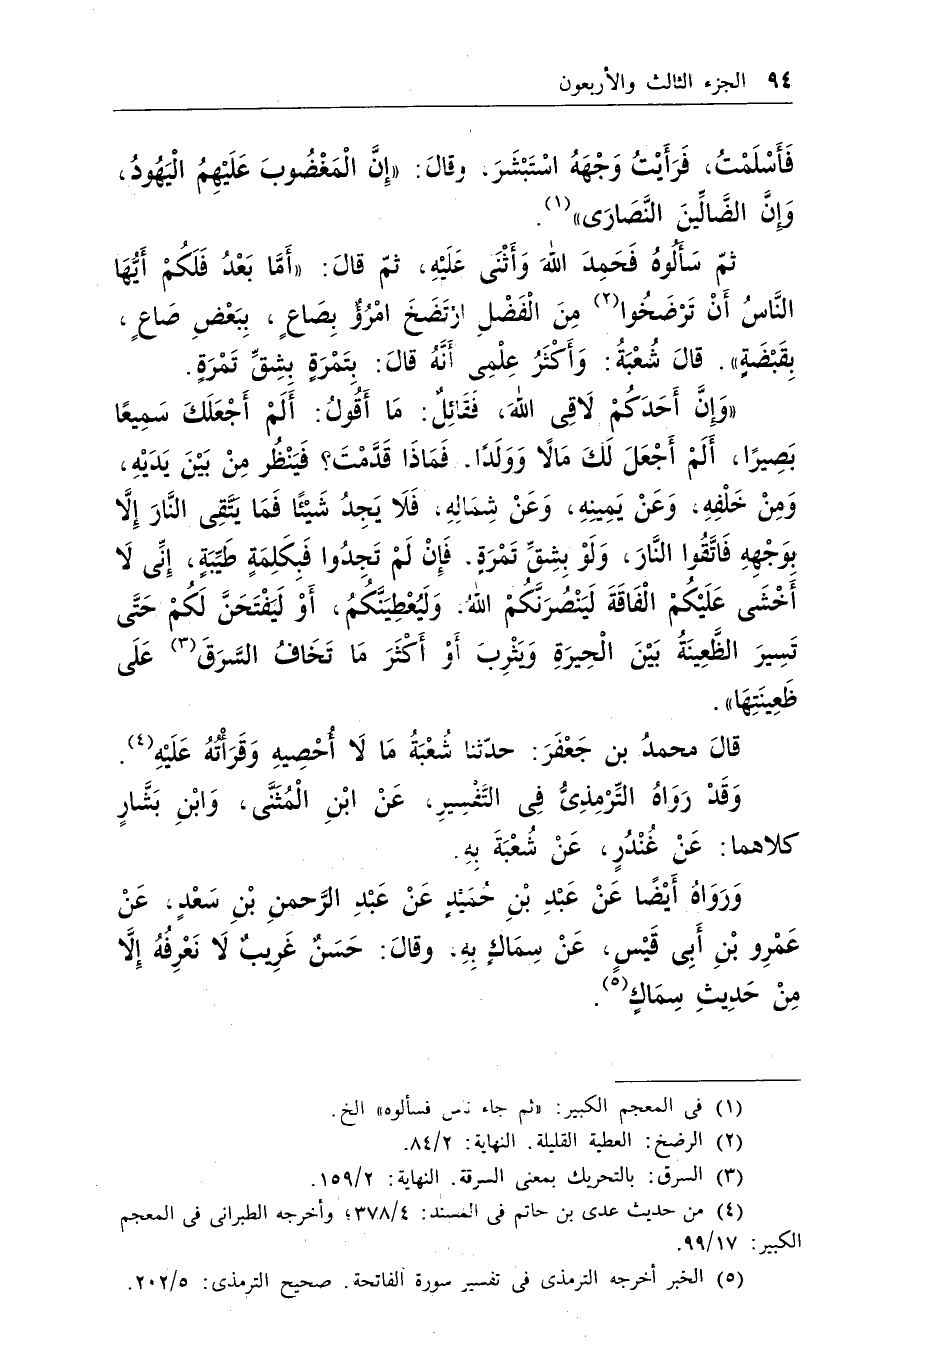 ٩٤ الجزء الثالث والأربعون
فَأَسْلَمْتُ، فَرَأَيْتُ وَجْهَهُ اسْتَبْشَرَ. وقالَ: «إِنَّ الْمَغْضُوبَ عَلَيْهِمُ الْيَهُودُ،
وَإِنَّ الضَّالِّينَ النَّصَارَى»(١).
ثمّ سَأَلُوهُ فَحَمِدَ اللهَ وَأَثْنَى عَلَيْهِ، ثمّ قالَ: «أَمَّا بَعْدُ فَلَكُمْ أَيُّهَا
النَّاسُ أَنْ تَرْضَخُوا(٢) مِنَ الْفَضْلِ ارْتَضَخَ امْرُؤٌ بِصَاعٍ، بِبَعْضِ صَاعٍ،
بِقَبْضَةٍ». قالَ شُعْبَةُ: وَأَكْثَرُ عِلْمِى أَنَّهُ قالَ: بِتَمْرَةٍ بِشِقِّ تَمْرَةٍ.
«وَإِنَّ أَحَدَكُمْ لَاقِى اللهَ، فَقَائِلٌ: مَا أَقُولُ: أَلَمْ أَجْعَلَكَ سَمِيعًا
بَصِيرًا، أَلَمْ أَجْعَلَ لَكَ مَالًا وَوَلَدًا. فَمَاذَا قَدَّمْتَ؟ فَيَنْظُر مِنْ بَيْنَ يَدَيْهِ،
وَمِنْ خَلْفِهِ، وَعَنْ يَمِينِهِ، وَعَنْ شِمَالِهِ، فَلَا يَجِدُ شَيْئًا فَمَا يَتَّقِى النَّارَ إِلَّا
بِوَجْهِهِ فَاتَّقُوا النَّارَ، وَلَوْ بِشِقِّ تَمْرَةٍ. فَإِنْ لَمْ تَجِدُوا فَبِكَلِمَةٍ طَيِّبَةٍ، إِنِّى لَا
أَخْشَى عَلَيْكُمْ الْفَاقَةَ لَيَنْصُرَنَّكُمْ اللهُ. وَلَيُعْطِيَنَّكُمُ، أَوْ لَيَفْتَحَنَّ لَكُمْ حَتَّى
تَسِيرَ الظَّعِينَةُ بَيْنَ الْحِيرَةِ وَيَثْرِبَ أَوْ أَكْثَرَ مَا تَخَافُ السَّرَقَ(٣) عَلَى
ظَعِينَتِهَا».
قالَ محمدُ بن جَعْفَرَ: حدّثنا شُعْبَةُ مَا لَا أُحْصِيهِ وَقَرَأْتُهُ عَلَيْهِ(٤).
وَقَدْ رَوَاهُ التِّرْمِذِىُّ فِى التَّفْسِيرِ، عَنْ ابْنِ الْمُثَنَّى، وَابْنِ بَشَّارٍ
كلاهما: عَنْ غُنْدُرٍ، عَنْ شُعْبَةَ بِهِ.
وَرَوَاهُ أَيْضًا عَنْ عَبْدِ بْنِ حُمَيْدٍ عَنْ عَبْدِ الرَّحمنِ بْنِ سَعْدٍ، عَنْ
عَمْرِو بْنِ أَبِى قَيْسٍ، عَنْ سِمَاكٍ بِهِ. وقالَ: حَسَنٌ غَرِيبٌ لَا نَعْرِفُهُ إِلَّا
مِنْ حَدِيثِ سِمَاكٍ(٥).
(١) فى المعجم الكبير: «ثم جاء ناس فسألوه» الخ.
(٢) الرضخ: العطية القليلة. النهاية: ٨٤/٢.
(٣) السرق: بالتحريك بمعنى السرقة. النهاية: ١٥٩/٢.
(٤) من حديث عدى بن حاتم فى المسند: ٣٧٨/٤؛ وأخرجه الطبرانى فى المعجم
الكبير: ٩٩/١٧.
(٥) الخبر أخرجه الترمذى فى تفسير سورة الفاتحة. صحيح الترمذى: ٢٠٢/٥.